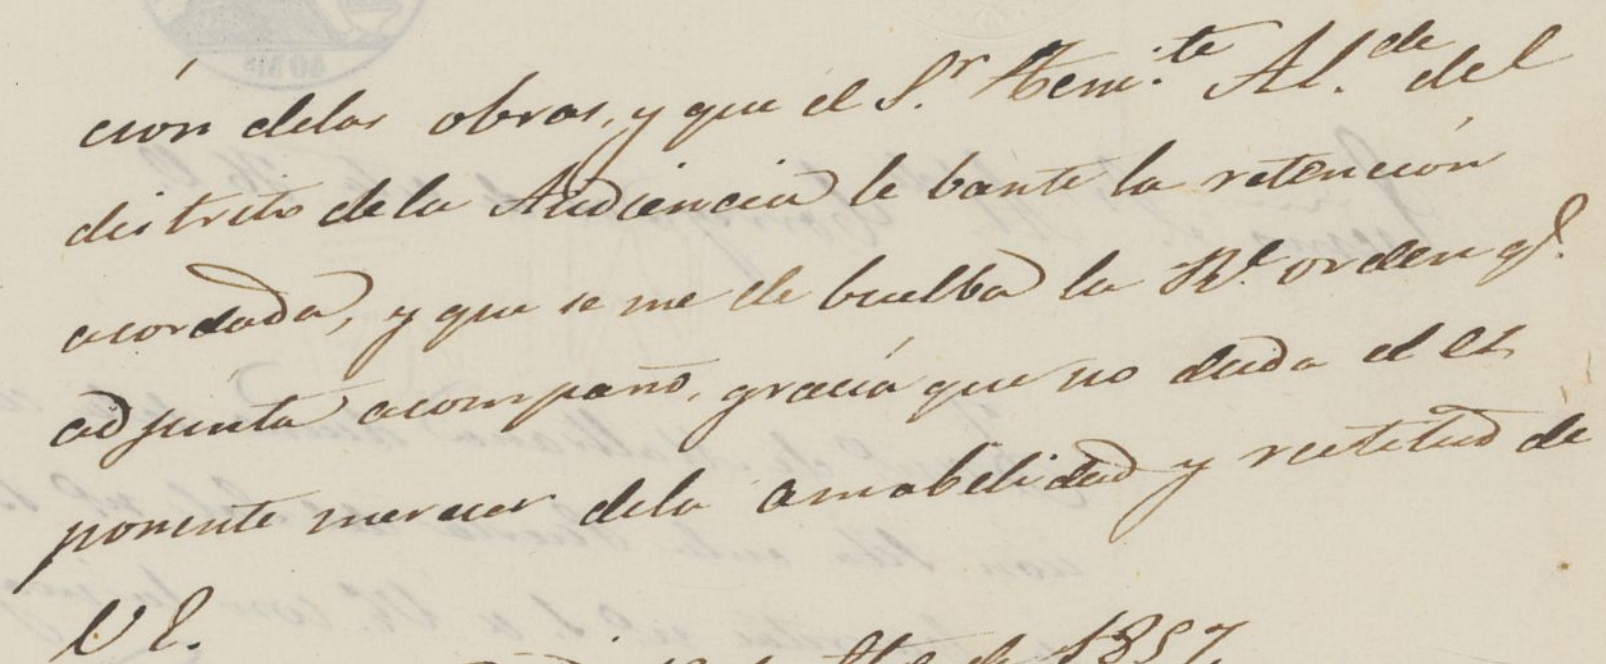 ción delas obras, y que el S.r Teni.te Al.de del
distrito dela Audiencia le bante la retención
acordada, y que se me de buelba la Rl. orden q.e
adjunta acompaño, gracia que no duda el es
ponente merecer dela amabelidad y rectitud de
V E.
de 1857